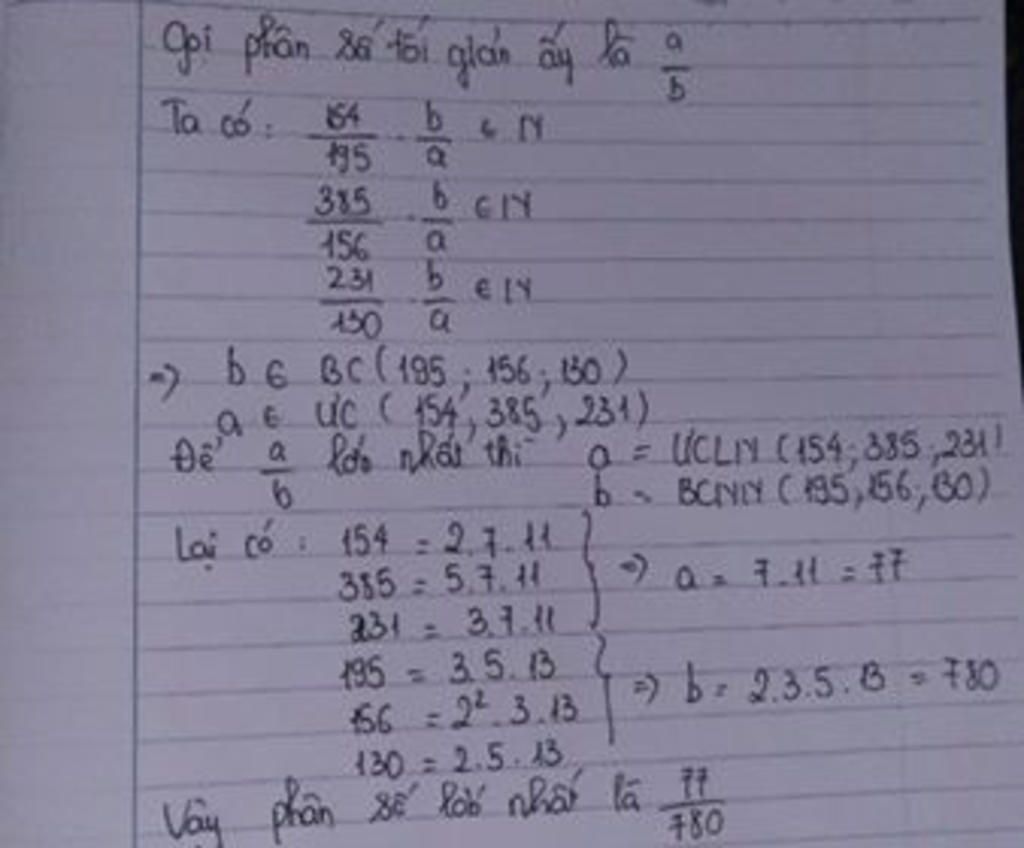 Gọi phân số tối giản ấy là a/b
Ta có: 154/195 . b/a ∈ N
385/156 . b/a ∈ N
231/130 . b/a ∈ N
=> b ∈ BC(195; 156; 130)
a ∈ ƯC (154, 385, 231)
Để a/b lớn nhất thì a = ƯCLN (154; 385, 231)
b = BCNN (195, 156, 130)
Lại có: 154 = 2.7.11
385 = 5.7.11 => a = 7.11 = 77
231 = 3.7.11
195 = 3.5.13
156 = 2².3.13 => b = 2.3.5.13 = 780
130 = 2.5.13
Vậy phân số lớn nhất là 77/780